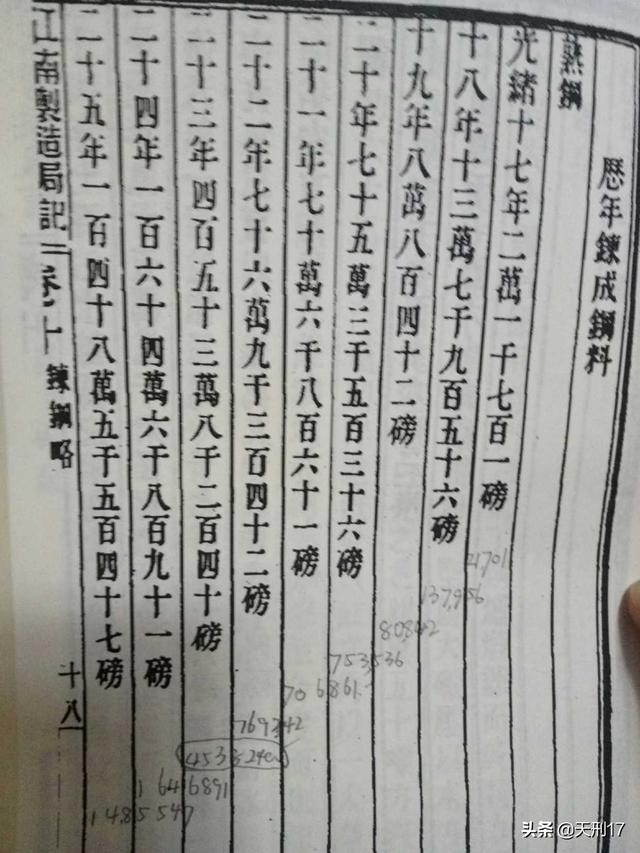 歷年鍊成鋼料
熟鋼
光緒十七年二萬一千七百一磅
十八年十三萬七千九百五十六磅
十九年八萬八百四十二磅
二十年七十五萬三千五百三十六磅
二十一年七十萬六千八百六十一磅
二十二年七十六萬九千三百四十二磅
二十三年四百五十三萬八千二百四十磅
二十四年一百六十四萬六千八百九十一磅
二十五年一百四十八萬五千五百四十七磅
江南製造局記 卷十 鍊鋼略 十八
21701
137,956
80842
753,536
706861
769342
1646891
1485547
头条 @天刑17